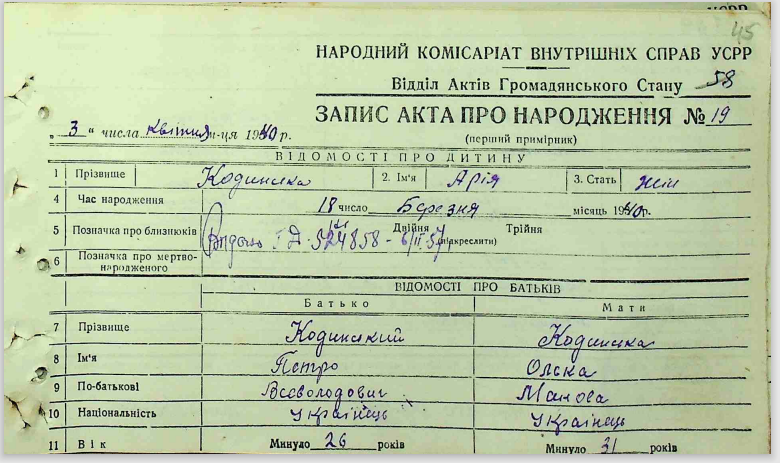 45
НАРОДНИЙ КОМІСАРІАТ ВНУТРІШНІХ СПРАВ УСРР
Відділ Актів Громадянського Стану 58
ЗАПИС АКТА ПРО НАРОДЖЕННЯ № 19
„ 3 “ числа квітня м-ця 1940 р.
(перший примірник)
ВІДОМОСТІ ПРО ДИТИНУ
1 Прізвище Кодинська 2. Ім'я Арія 3. Стать жін
4 Час народження 18 число Березня місяць 1940 р.
5 Позначка про близнюків Двійня Трійня
(підкреслити)
Видано 524858 - 6/II 57
6 Позначка про мертвонародженого
ВІДОМОСТІ ПРО БАТЬКІВ
Батько Мати
7 Прізвище Кодинський Кодинська
8 Ім'я Петро
9 По-батькові Всеволодович
10 Національність Українець Українець
11 Вік Минуло 26 років Минуло 31 років